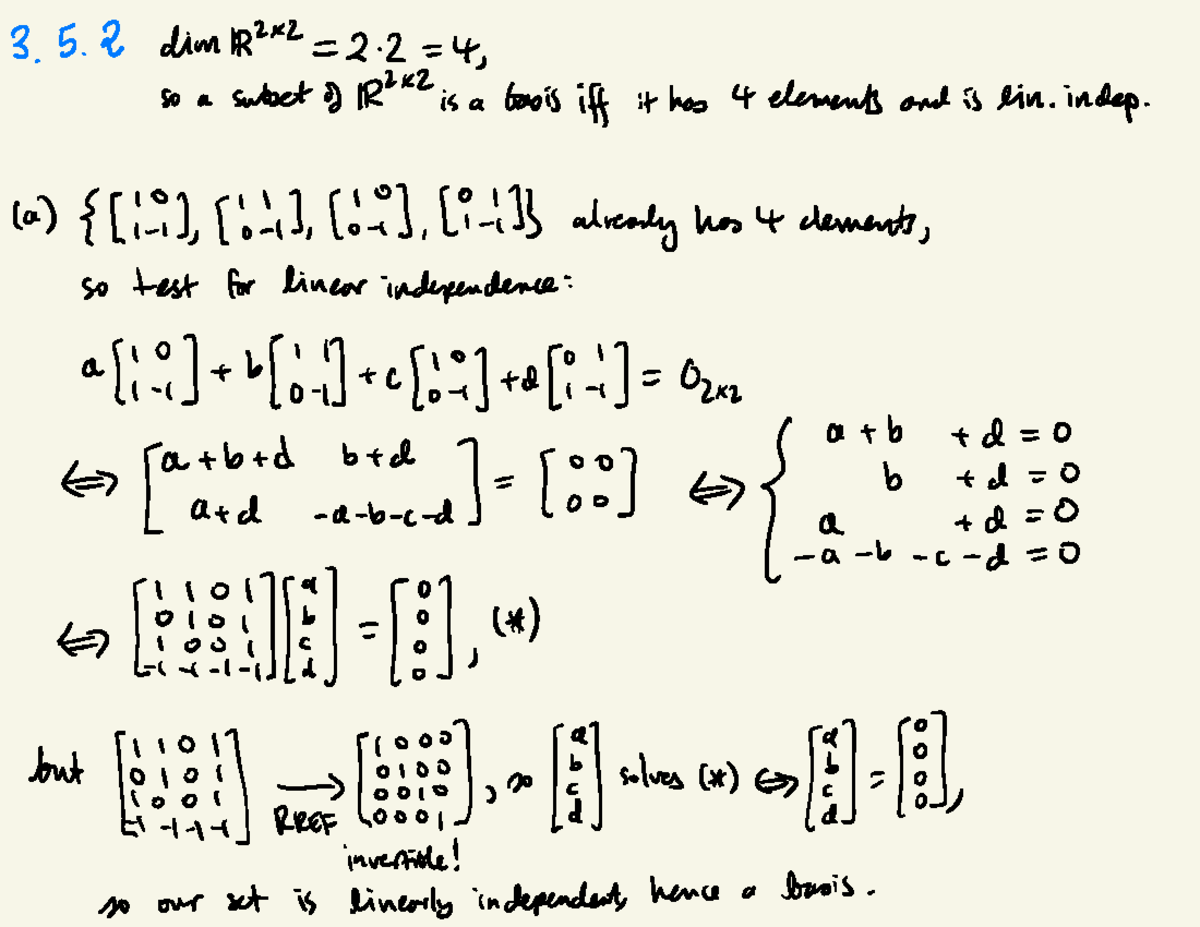 3.5.2 dim ℝ^{2×2} = 2·2 = 4,
so a subset of ℝ^{2×2} is a basis iff it has 4 elements and is lin. indep.
(a) {[1 0; 1 -1], [1 1; 0 -1], [1 0; 0 -1], [0 1; 1 -1]} already has 4 elements,
so test for linear independence:
a[1 0; 1 -1] + b[1 1; 0 -1] + c[1 0; 0 -1] + d[0 1; 1 -1] = 0_{2×2}
⟺ [a+b+d b+d; a+d -a-b-c-d] = [0 0; 0 0] ⟺ { a + b + d = 0
b + d = 0
a + d = 0
-a - b - c - d = 0
⟺ [1 1 0 1; 0 1 0 1; 1 0 0 1; -1 -1 -1 -1][a; b; c; d] = [0; 0; 0; 0], (*)
but [1 1 0 1; 0 1 0 1; 1 0 0 1; -1 -1 -1 -1] →RREF [1 0 0 0; 0 1 0 0; 0 0 1 0; 0 0 0 1], so [a; b; c; d] solves (*) ⟺ [a; b; c; d] = [0; 0; 0; 0],
invertible!
so our set is linearly independent, hence a basis.